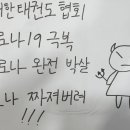 대한태권도 협회
코로나19 극복
코로나 완전 박살
코로나 짜져버려
!!!